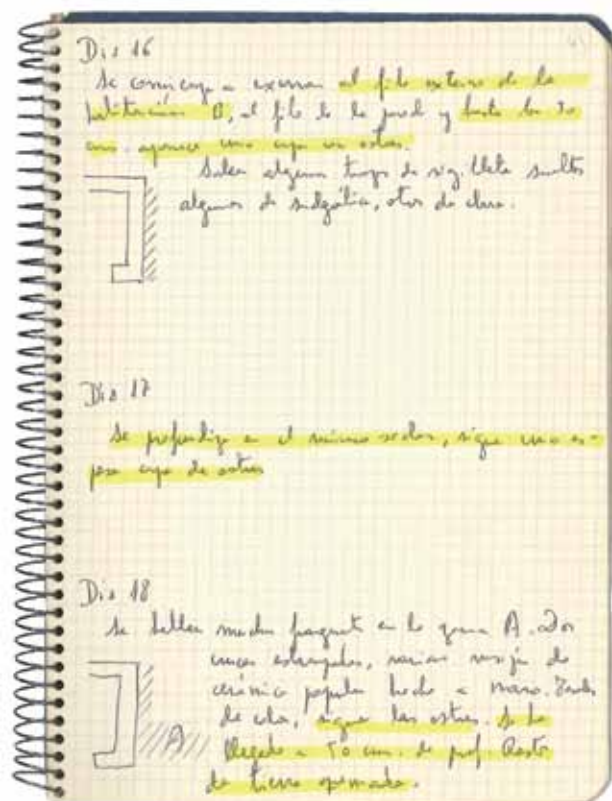 Dia 16
Se comienza a excavar al filo externo de la
habitación D, al filo de la pared y hasta los 30
cms. aparece una capa sin ostras.
Salen algunos trozos de sigillata sueltos
algunos de sudgálica, otros de clara.
Dia 17
Se profundiza en el mismo sector, sigue una es-
pesa capa de ostras
Dia 18
Se hallan muchos fragmentos en la zona A. Dos
estampadas, varias vasijas de
cerámica popular hecha a mano.
de clara, siguen las ostras. Se ha
llegado a 50 cm. de prof. Restos
de tierra quemada.
A